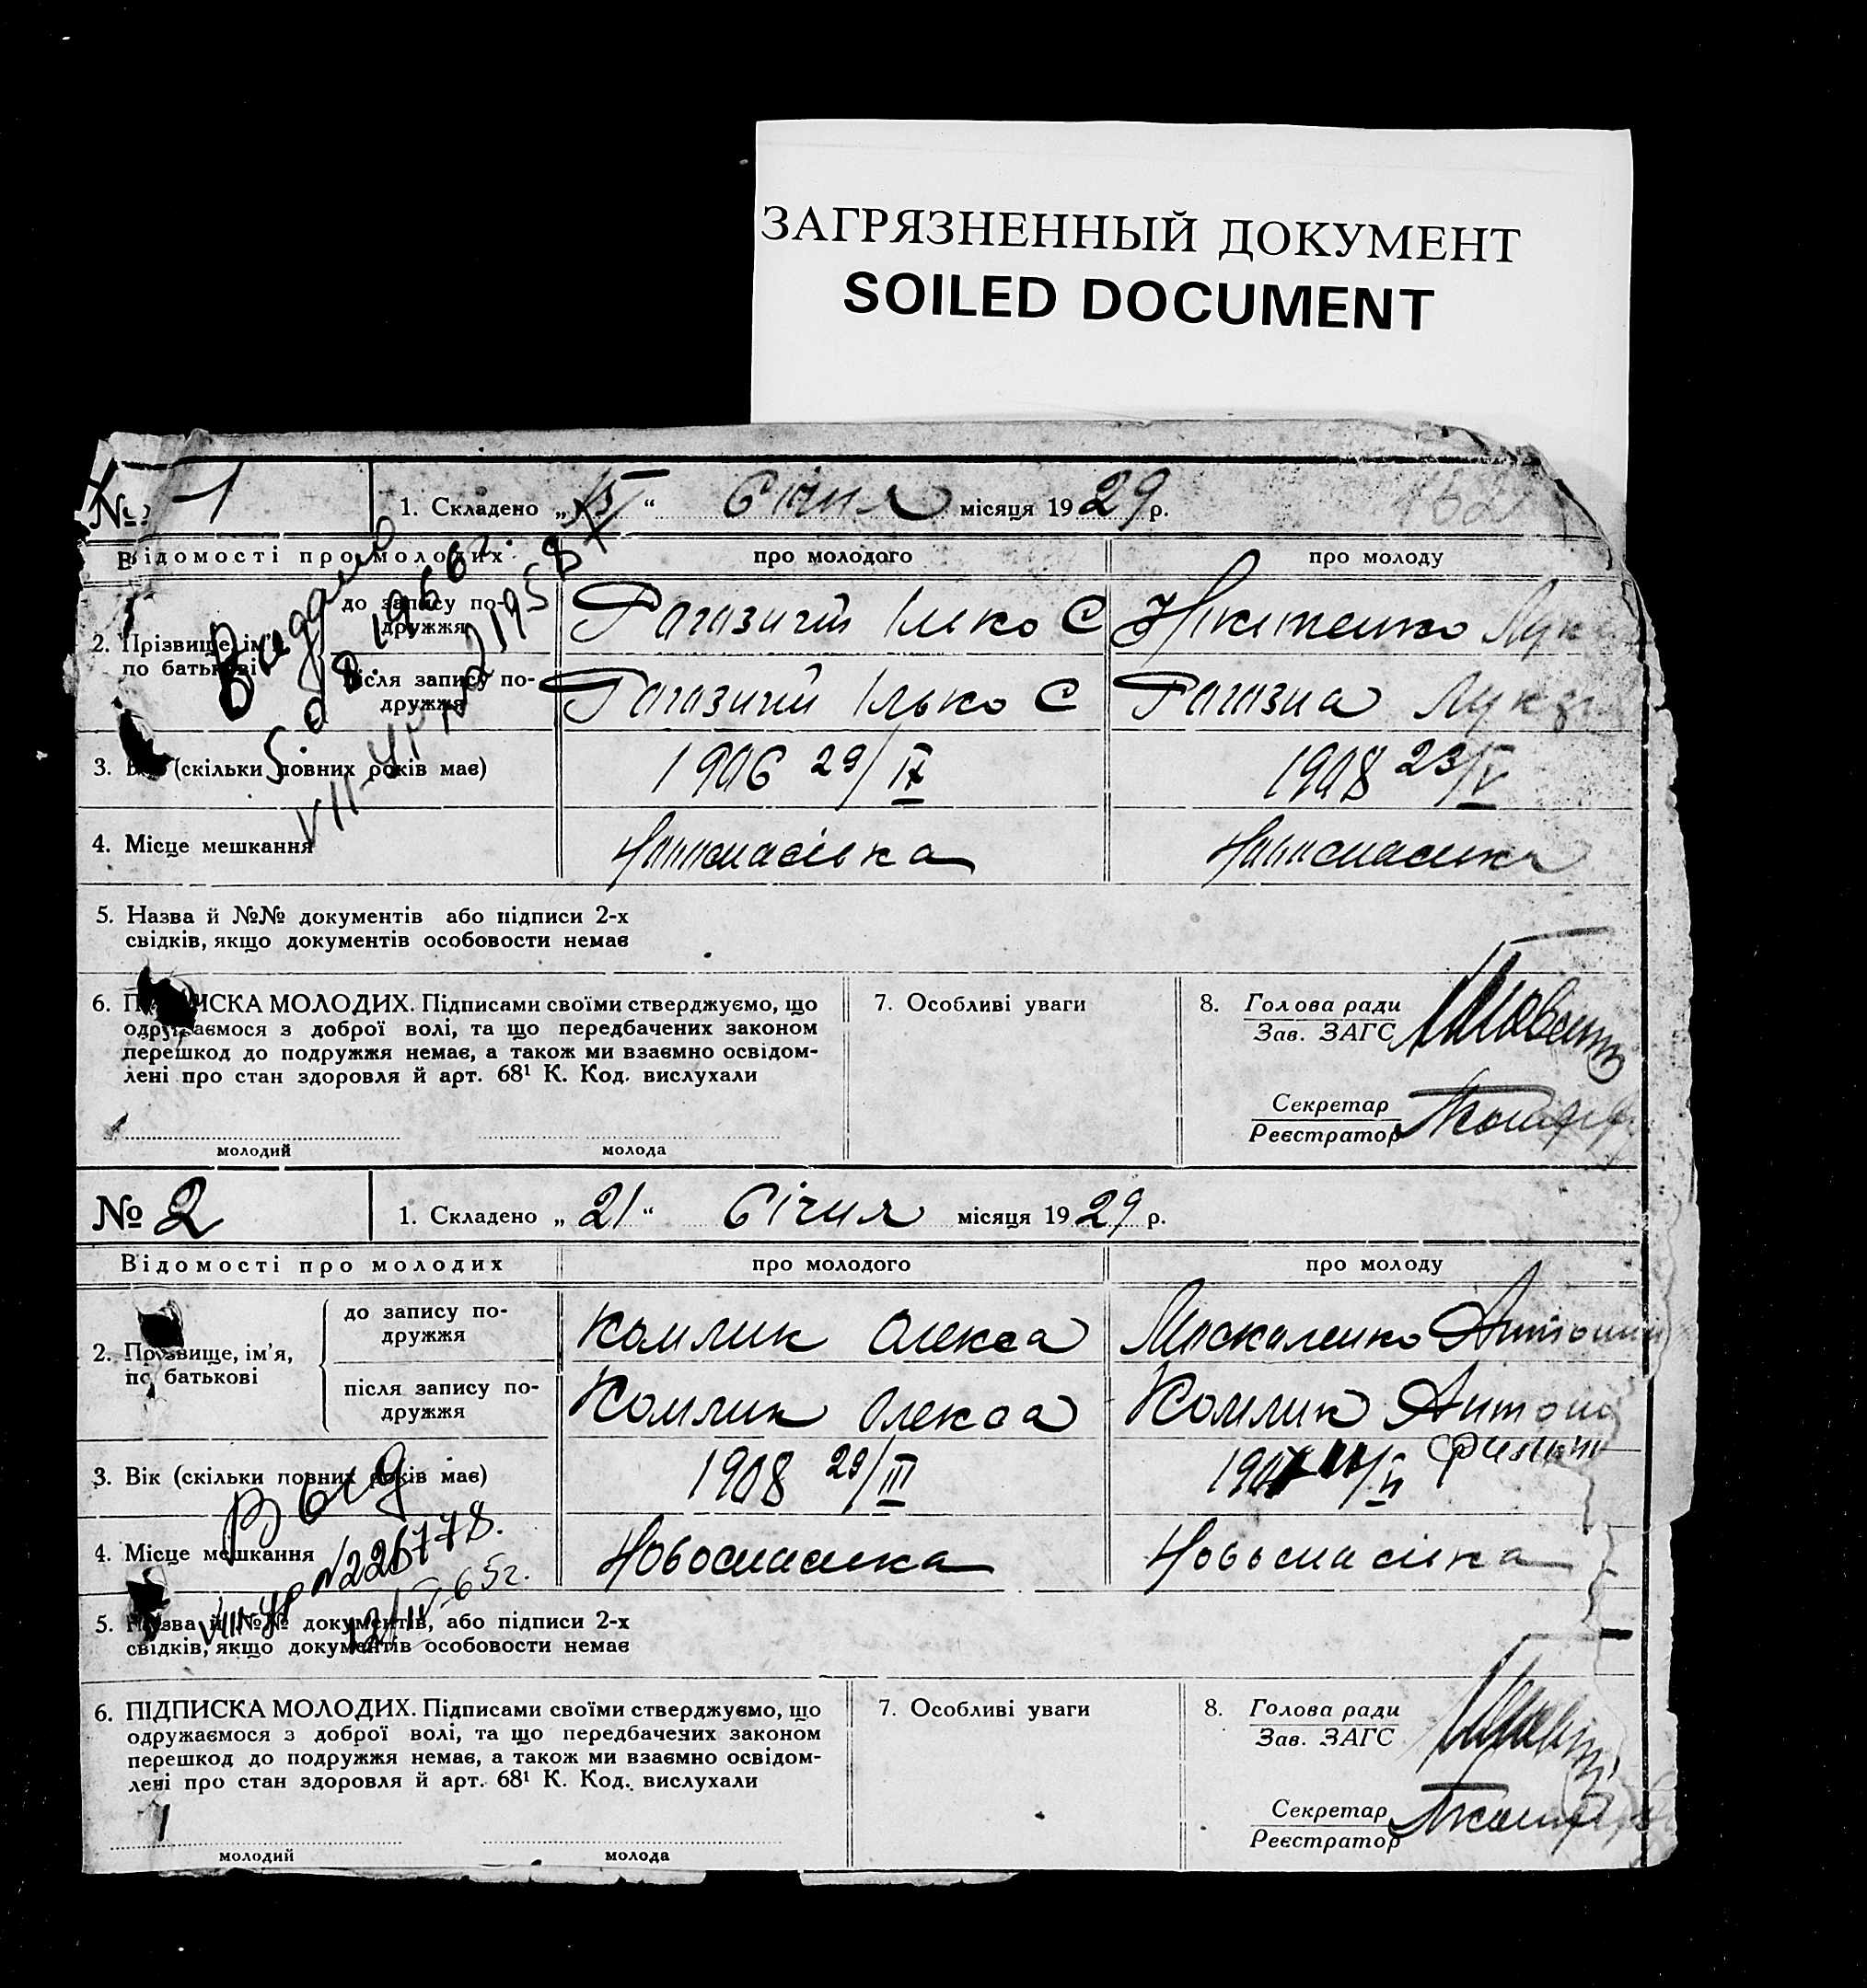 ЗАГРЯЗНЕННЫЙ ДОКУМЕНТ
SOILED DOCUMENT
№ 1
1. Складено „15“ Січня місяця 1929 р.
Відомості про молодих
про молодого
про молоду
2. Прізвище, ім'я, по батькові
до запису подружжя
Рагазчий Ілько С
Нікітенко
після запису подружжя
Рагазчий Ілько С
3. Вік (скільки повних років має)
1906 29/IX
1908 23/V
4. Місце мешкання
Новоспасівка
Новоспасівка
5. Назва й №№ документів або підписи 2-х
свідків, якщо документів особовости немає
6. ПІДПИСКА МОЛОДИХ. Підписами своїми стверджуємо, що
одружаємося з доброї волі, та що передбачених законом
перешкод до подружжя немає, а також ми взаємно освідом-
лені про стан здоровля й арт. 68¹ К. Код. вислухали
молодий
молода
7. Особливі уваги
8. Голова ради
Зав. ЗАГС
Секретар
Реєстратор
№ 2
1. Складено „21“ Січня місяця 1929 р.
Відомості про молодих
про молодого
про молоду
2. Прізвище, ім'я,
по батькові
до запису по-
дружжя
Комлик Олекса
Москаленко
після запису по-
дружжя
Комлик Олекса
Комлик
3. Вік (скільки повних років має)
1908 29/III
4. Місце мешкання
Новоспасівка
Новоспасівка
5. Назва й №№ документів, або підписи 2-х
свідків, якщо документів особовости немає
6. ПІДПИСКА МОЛОДИХ. Підписами своїми стверджуємо, що
одружаємося з доброї волі, та що передбачених законом
перешкод до подружжя немає, а також ми взаємно освідом-
лені про стан здоровля й арт. 68¹ К. Код. вислухали
молодий
молода
7. Особливі уваги
8. Голова ради
Зав. ЗАГС
Секретар
Реєстратор